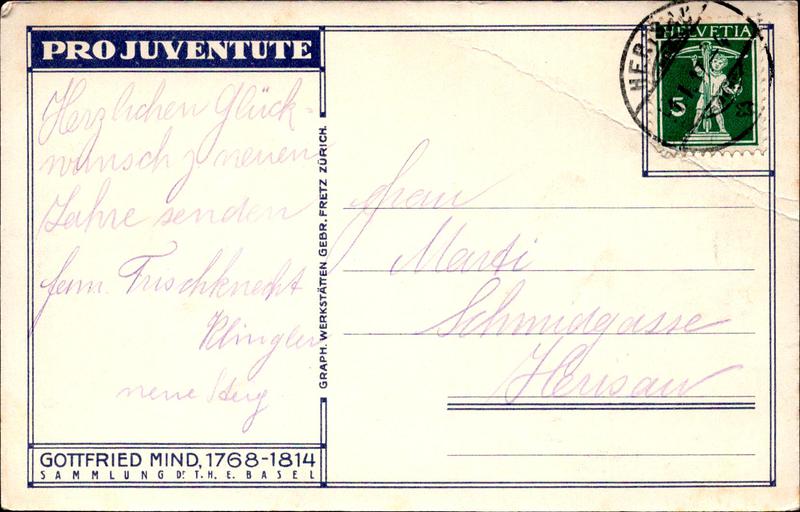 PRO JUVENTUTE
Herzlichen Glück-
wunsch z neuen
Jahre senden
fam. Frischknecht
Klingler
neue
GOTTFRIED MIND, 1768-1814
SAMMLUNG DR. T. H. E. BASEL
GRAPH. WERKSTÄTTEN GEBR. FRETZ ZÜRICH.
HELVETIA
5
HERISAU
Frau
Marti
Schmidgasse
Herisau